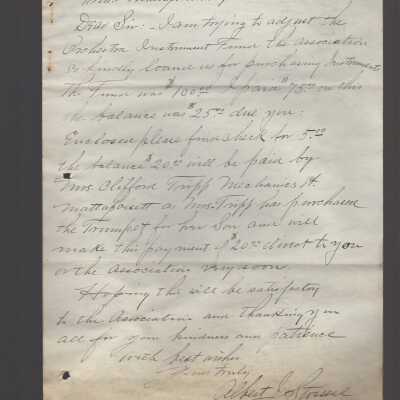 Dear Sir:- I am trying to adjust the
Orchestra Instrument Fund the Association
so kindly loaned us for purchasing Instruments
the Fund was $100.00 I paid $75.00 on this
the balance was $25.00 due you.
Enclosed please find check for 5.00
the balance $20.00 will be paid by
Mrs. Clifford Tripp Mechanics St.
Mattapoisett as Mrs. Tripp has purchased
the Trumpet for her Son and will
make this payment of $20.00 direct to you
or the Association very soon.
Hoping this will be satisfactory
to the Association and thanking you
all for your kindness and patience
With best wishes
Yours truly
Albert